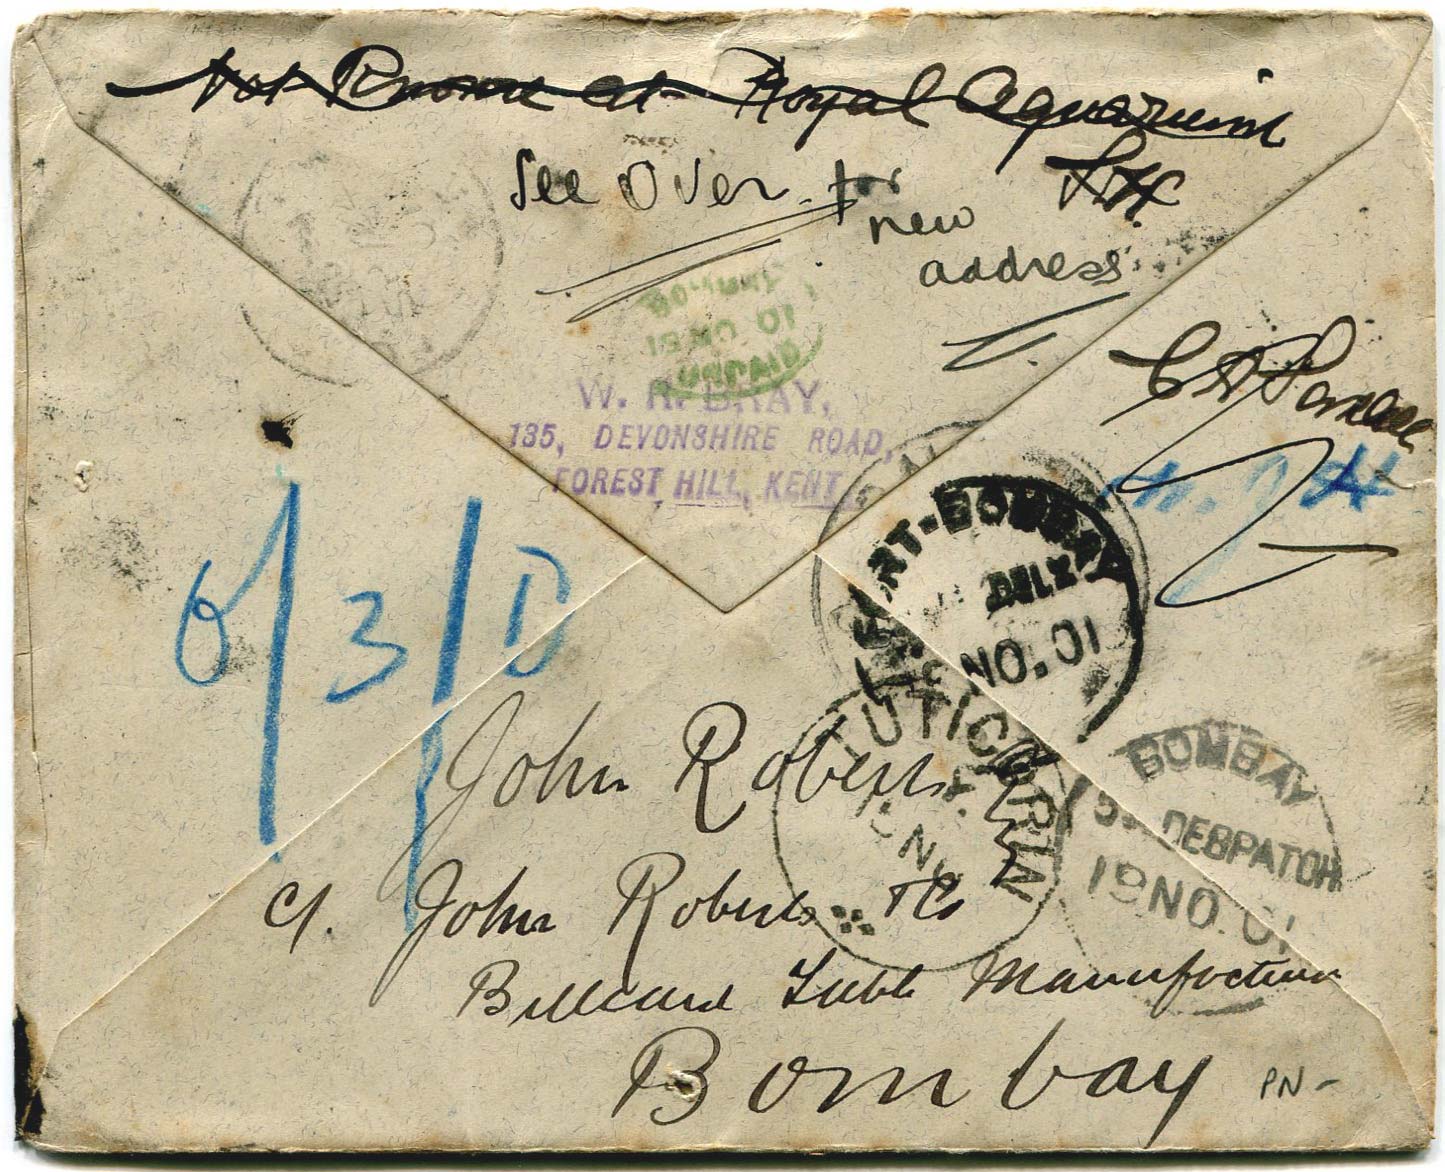 Not Known at Royal Aquarium
See Over for
new
address
BOMBAY
19 NO 01
UNPAID
W. R. BRAY,
135, DEVONSHIRE ROAD,
FOREST HILL, KENT.
6/3/D
T.S.ORT-BOMBAY
DELY
NO. 01
TUTICORIN
NO
BOMBAY
DESPATCH
19 NO. 01
John Roberts
c/. John Roberts & Co
Billiard Table Manufacturer
Bombay
PN-